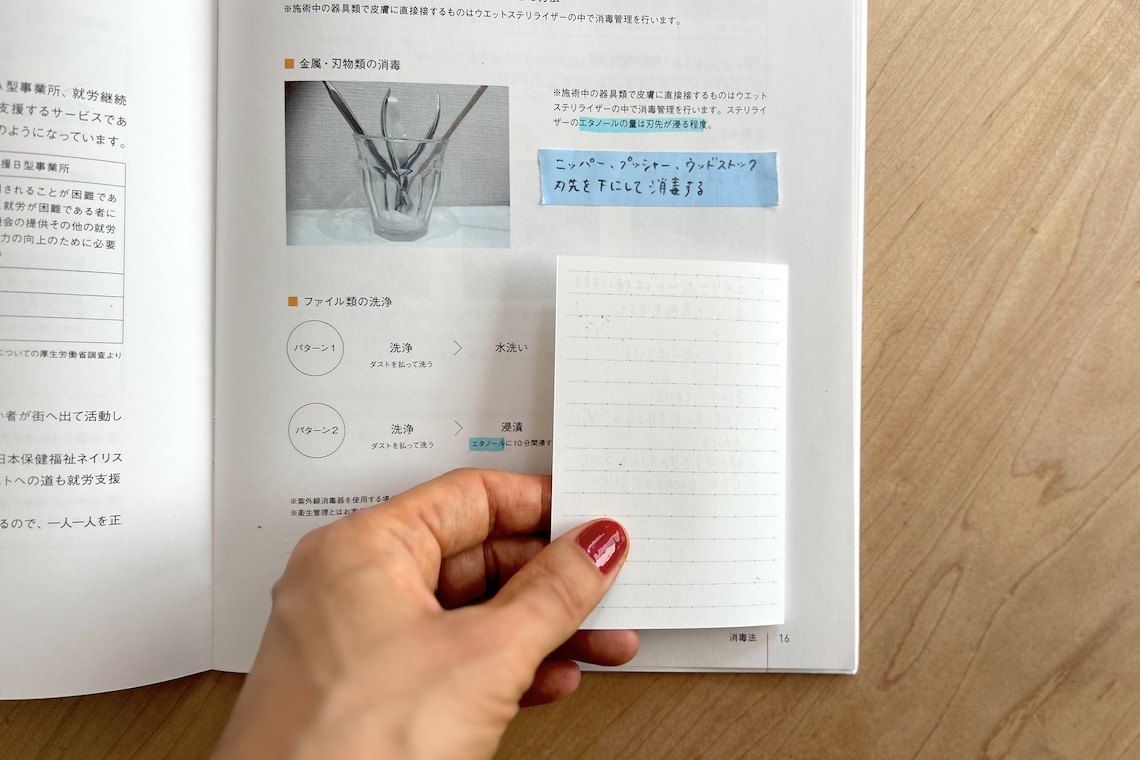 A型事業所、就労継続
支援するサービスであ
のようになっています。
援B型事業所
されることが困難であ
就労が困難である者に
機会の提供その他の就労
力の向上のために必要
についての厚生労働省調査より
者が街へ出て活動し
日本保健福祉ネイリス
ストへの道も就労支援
るので、一人一人を正
※施術中の器具類で皮膚に直接接するものはウエットステリライザーの中で消毒管理を行います。
金属・刃物類の消毒
※施術中の器具類で皮膚に直接接するものはウエット
ステリライザーの中で消毒管理を行います。ステリライ
ザーのエタノールの量は刃先が浸る程度。
ニッパー、プッシャー、ウッドストック
刃先を下にして消毒する
ファイル類の洗浄
パターン1
洗浄
ダストを払って洗う
水洗い
パターン2
洗浄
ダストを払って洗う
浸漬
エタノールに10分間浸す
※紫外線消毒器を使用する場
※衛生管理とはお客
消毒法 16